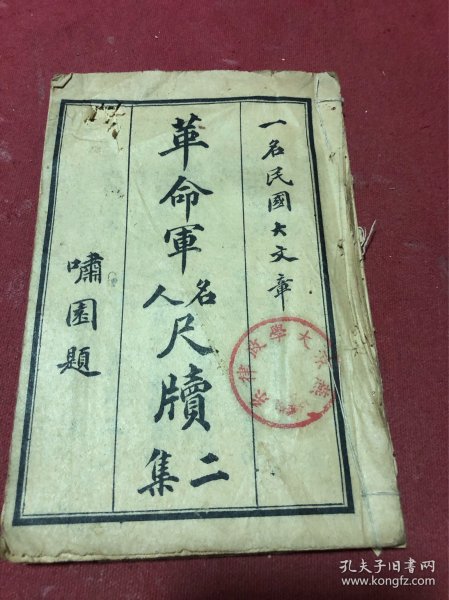 一名民國大文章
革命軍名人尺牘二集
嘯園題
孔夫子旧书网
www.kongfz.com